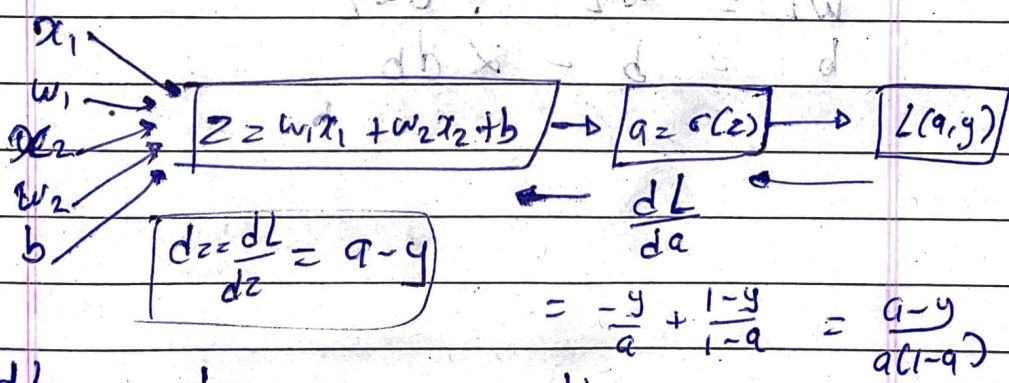 x₁
w₁
x₂
w₂
b
z = w₁x₁ + w₂x₂ + b → a = σ(z) → L(a, y)
dL/da
dz = dL/dz = a - y
= -y/a + 1-y/1-a = a-y/a(1-a)